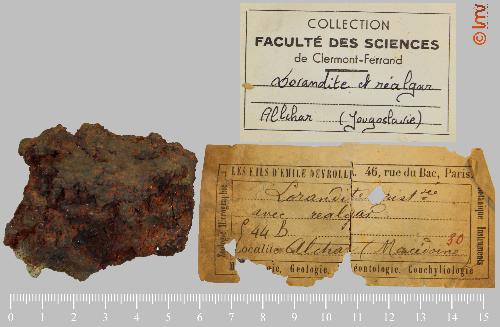 COLLECTION
FACULTÉ DES SCIENCES
de Clermont-Ferrand
Lorandite et réalgar
Allchar (Yougoslavie)
LES FILS D'EMILE DEYROLLE, 46, rue du Bac, Paris.
Lorandite
avec realgar
44 B
Localité Alchar / Macédoine
30
Geologie, Conchyliologie
Instruments
0 1 2 3 4 5 6 7 8 9 10 11 12 13 14 15
© lmv